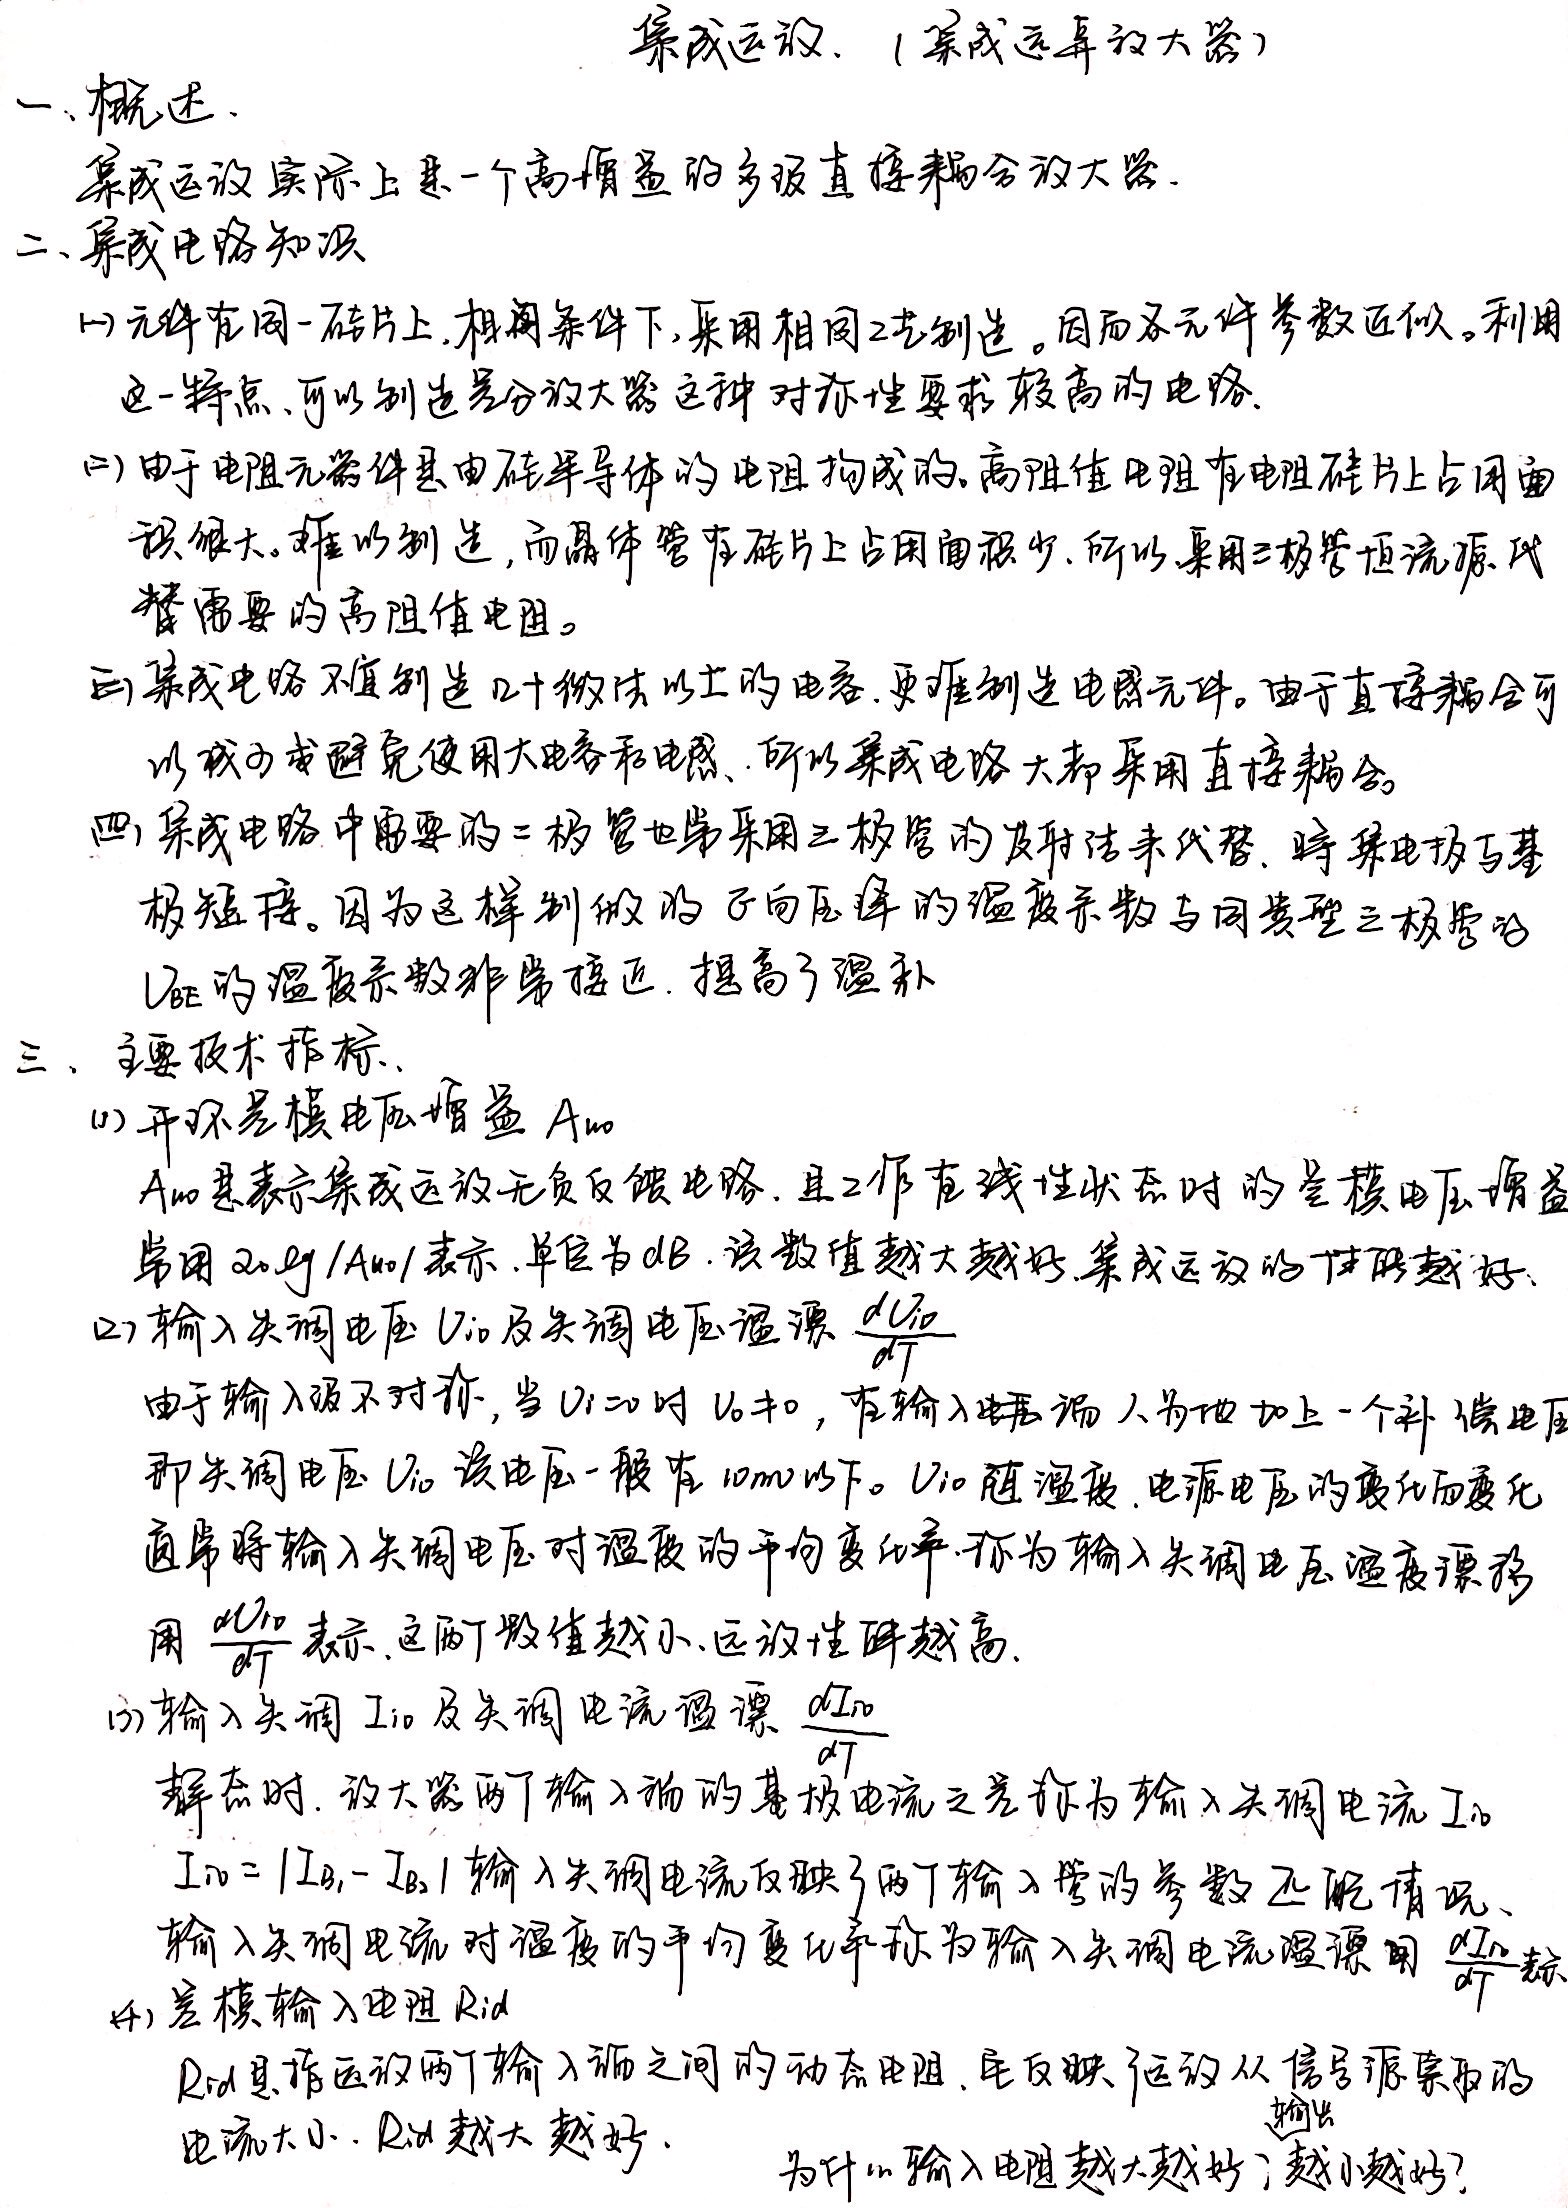 集成运放.（集成运算放大器）
一、概述.
集成运放实际上是一个高增益的多级直接耦合放大器.
二、集成电路知识
(一) 元件在同一硅片上,相同条件下,采用相同工艺制造。因而各元件参数近似。利用
这一特点、可以制造差分放大器这种对称性要求较高的电路.
(二) 由于电阻元器件是由硅半导体的电阻构成的。高阻值电阻在电阻硅片上占用面
积很大。难以制造,而晶体管在硅片上占用面积少.所以采用三极管恒流源代
替需要的高阻值电阻。
(三) 集成电路不宜制造几十微法以上的电容.更难制造电感元件。由于直接耦合可
以减少或避免使用大电容和电感、所以集成电路大都采用直接耦合。
(四) 集成电路中需要的二极管也常采用三极管的发射结来代替.将集电极与基
极短接。因为这样制做的正向压降的温度系数与同类型三极管的
UBE的温度系数非常接近.提高了温补
三、主要技术指标.
(1) 开环差模电压增益 Auo
Auo是表示集成运放无负反馈电路.且工作在线性状态时的差模电压增益
常用20lg|Auo|表示.单位为dB.该数值越大越好.集成运放的性能越好.
(2) 输入失调电压Uio及失调电压温漂 dUio/dT
由于输入级不对称,当Ui=0时Uo≠0,在输入电压端人为地加上一个补偿电压
即失调电压Uio该电压一般在10mV以下。Uio随温度.电源电压的变化而变化
通常将输入失调电压对温度的平均变化率.称为输入失调电压温度漂移
用 dUio/dT 表示.这两个数值越小.运放性能越高.
(3) 输入失调 Iio 及失调电流温漂 dIio/dT
静态时.放大器两个输入端的基极电流之差称为输入失调电流Iio
Iio=|IB1-IB2|输入失调电流反映了两个输入管的参数匹配情况、
输入失调电流对温度的平均变化率称为输入失调电流温漂用 dIio/dT 表示
(4) 差模输入电阻Rid
Rid是指运放两个输入端之间的动态电阻.它反映了运放从信号源索取的
电流大小.Rid越大越好.
为什么输入电阻越大越好;输出越小越好?